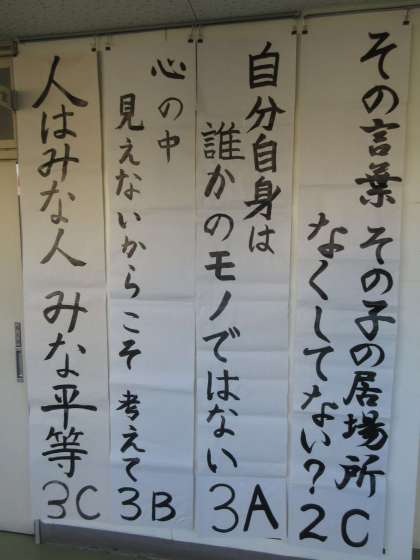 その言葉 その子の居場所
なくしてない?
2C
自分自身は
誰かのモノではない
3A
心の中
見えないからこそ 考えて
3B
人はみな人 みな平等
3C